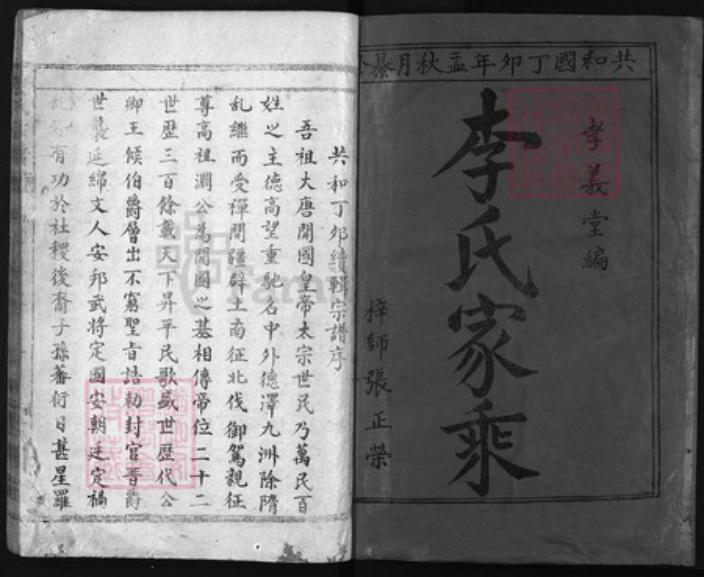 共和國丁卯年孟秋月纂
孝義堂編
李氏家乘
梓師張正榮
共和丁卯續輯宗譜序
吾祖大唐開國皇帝太宗世民乃萬民百
姓之主德高望重馳名中外德澤九洲除隋
乱繼而受禪開疆辟土南征北伐御駕親征
尊高祖淵公為開國之基相傳帝位二十二
世歷三百餘載天下昇平民歌盛世歷代公
卿王候伯爵層出不窮聖旨誥勅封官晋爵
世襲延綿文人安邦武將定國安朝廷定禍
乱 有功於社稷後裔子孫蕃衍日甚星羅